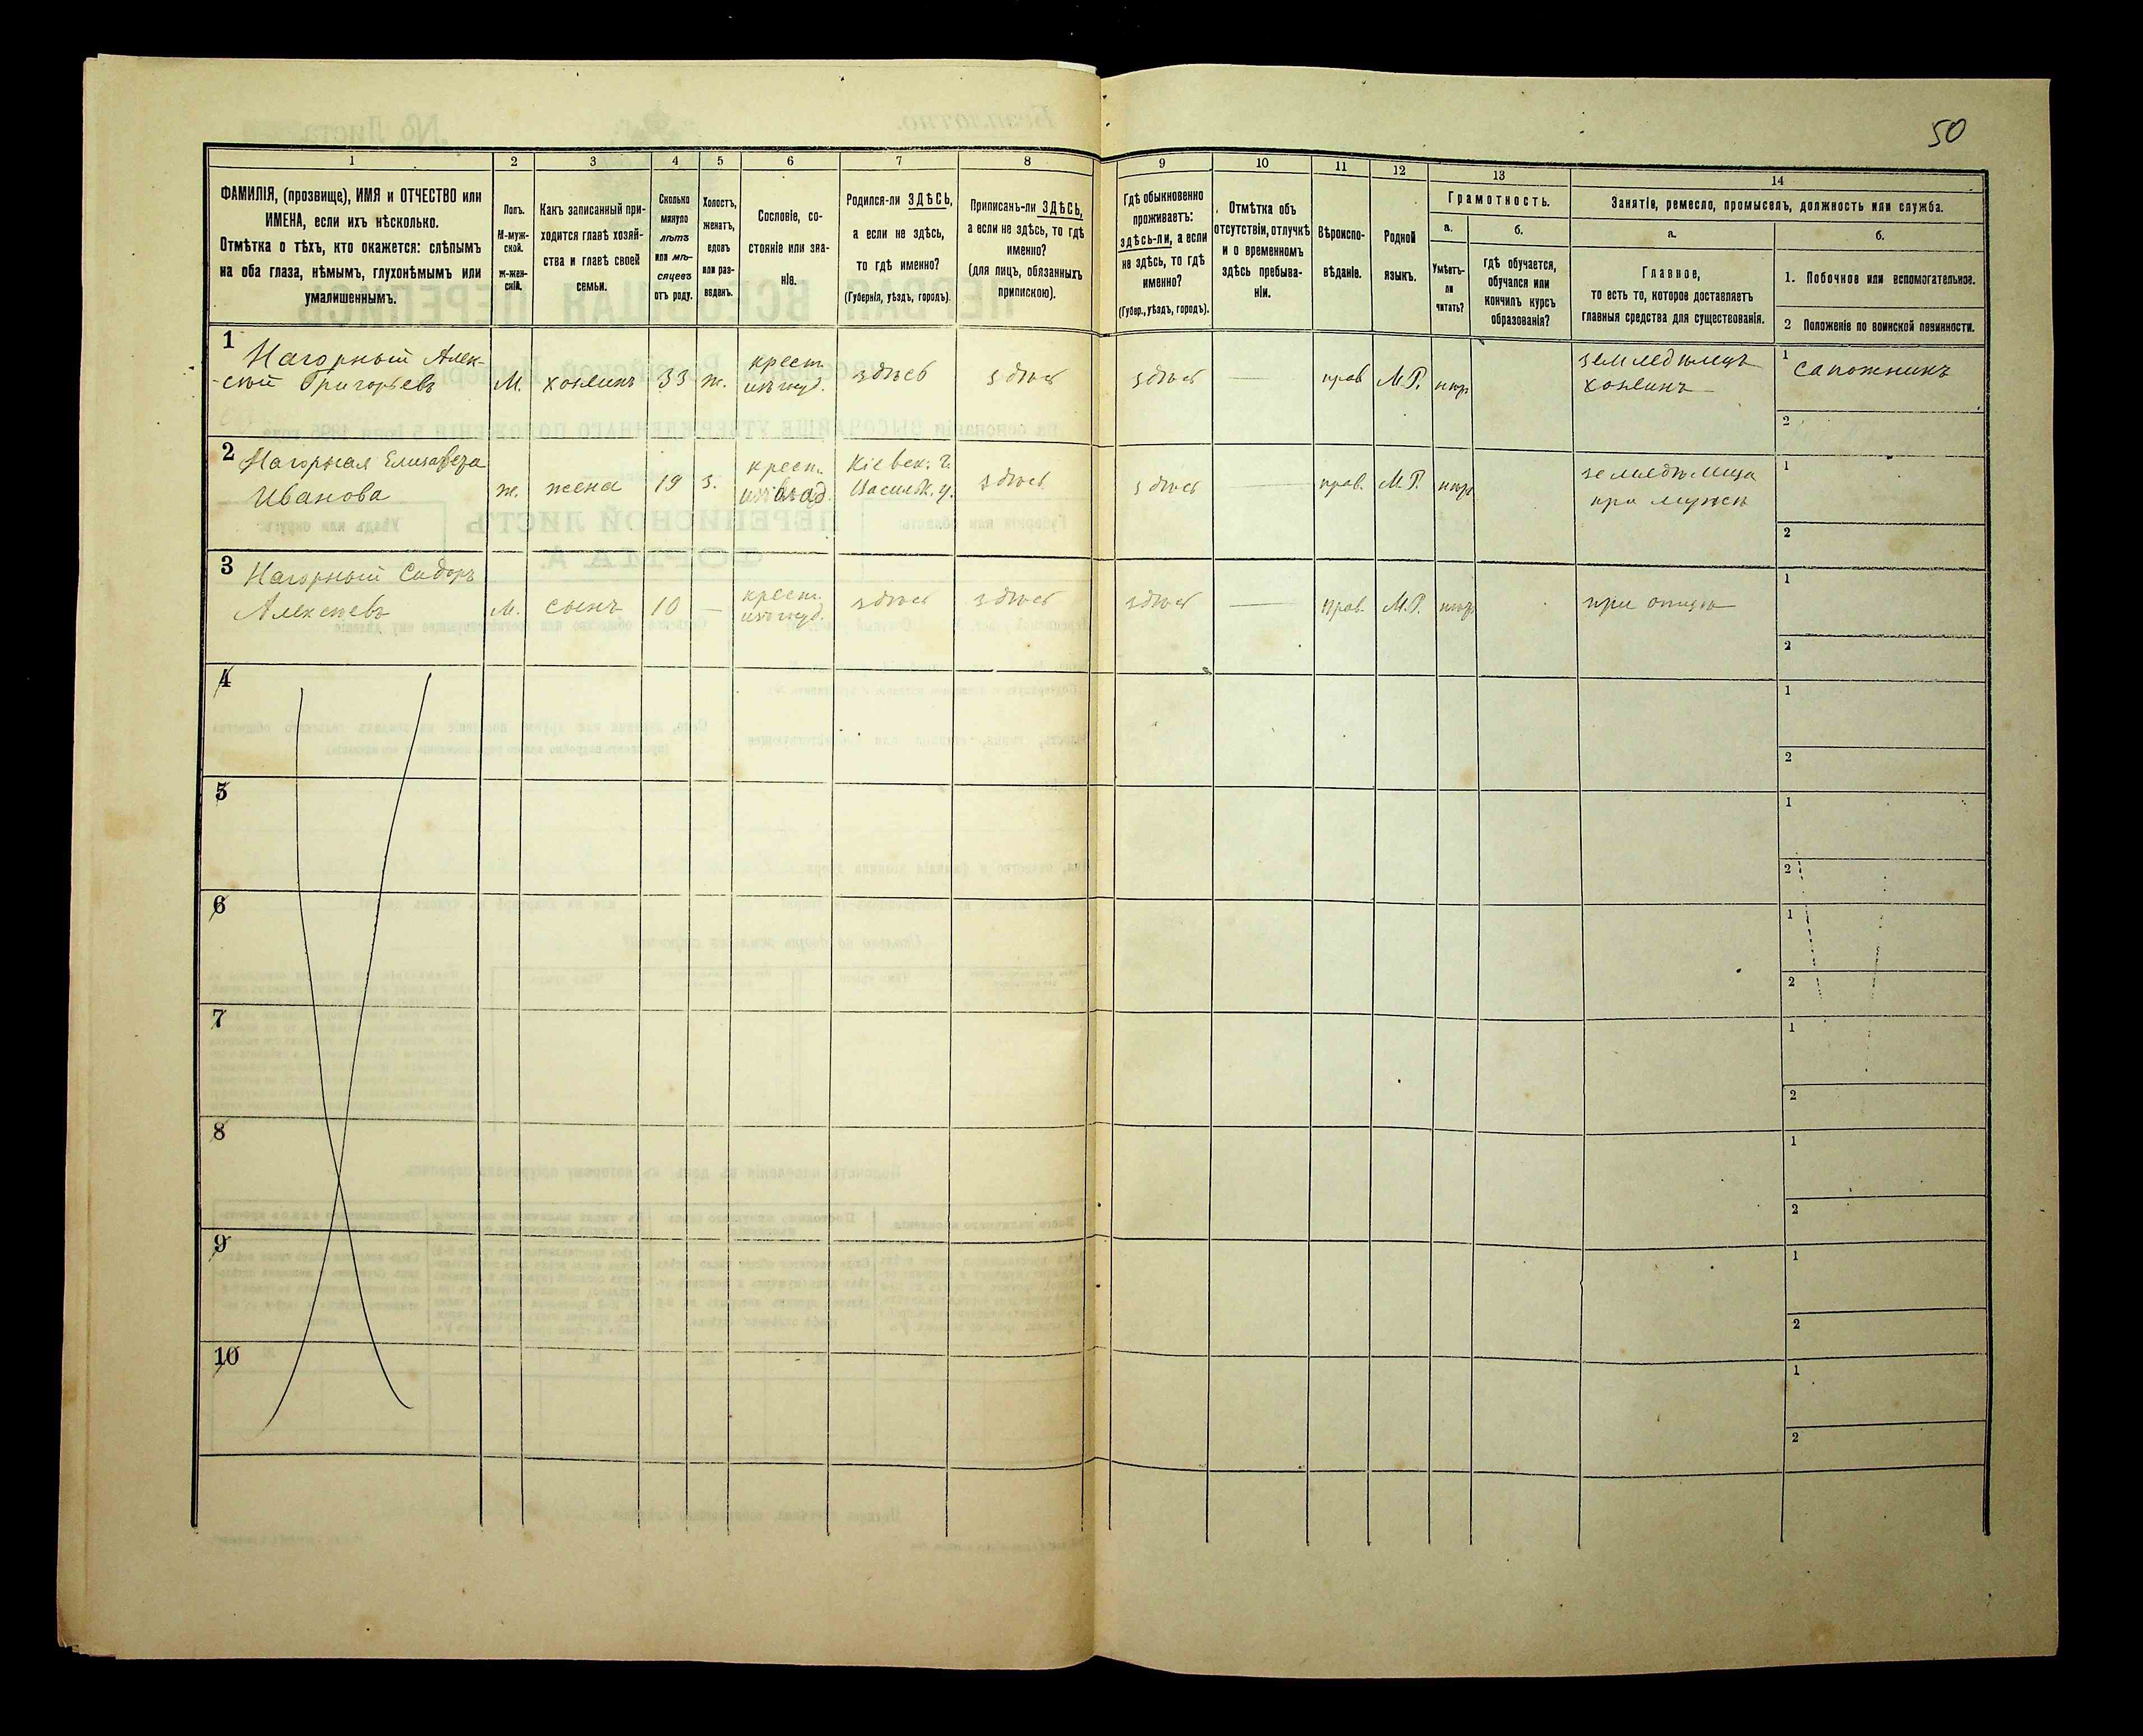 50
1 2 3 4 5 6 7 8 9 10 11 12 13 14
ФАМИЛІЯ, (прозвище), ИМЯ и ОТЧЕСТВО или
ИМЕНА, если ихъ нѣсколько.
Отмѣтка о тѣхъ, кто окажется: слѣпымъ
на оба глаза, нѣмымъ, глухонѣмымъ или
умалишеннымъ.
Полъ.
М-муж-
ской.
Ж-жен-
скій.
Какъ записанный при-
ходится главѣ хозяй-
ства и главѣ своей
семьи.
Сколько
минуло
лѣтъ
или мѣ-
сяцевъ
отъ роду.
Холостъ,
женатъ,
вдовъ
или раз-
веденъ.
Сословіе, со-
стояніе или зва-
ніе.
Родился-ли ЗДѢСЬ,
а если не здѣсь,
то гдѣ именно?
(Губернія, уѣздъ, городъ).
Приписанъ-ли ЗДѢСЬ,
а если не здѣсь, то гдѣ
именно?
(для лицъ, обязанныхъ
припискою).
Гдѣ обыкновенно
проживаетъ:
здѣсь-ли, а если
не здѣсь, то гдѣ
именно?
(Губер., уѣздъ, городъ).
Отмѣтка объ
отсутствіи, отлучкѣ
и о временномъ
здѣсь пребыва-
ніи.
Вѣроиспо-
вѣданіе.
Родной
языкъ.
Грамотность.
а. б.
Умѣетъ-
ли
читать?
гдѣ обучается,
обучался или
кончилъ курсъ
образованія?
Занятіе, ремесло, промыселъ, должность или служба.
а. б.
Главное,
то есть то, которое доставляетъ
главныя средства для существованія.
1. Побочное или вспомогательное.
2 Положеніе по воинской повинности.
1 Нагорный Алек-
-сѣй Григорьевъ М. хозяинъ 33 ж. крест. здѣсь здѣсь здѣсь — прав М.Р. землед ѣлецъ
хозяинъ
1 сапожникъ
2
2 Нагорная Елизавета
Иванова ж. жена 19 з. крест. Кіевск. г.
Васильк. у. здѣсь здѣсь — прав. М.Р. земледѣлица
при мужѣ
1
2
3 Нагорный Сидоръ
Алексѣевъ М. сынъ 10 — крест. здѣсь здѣсь здѣсь — прав. М.Р. при отцѣ
1
2
4
1
2
5
1
2
6
1
2
7
1
2
8
1
2
9
1
2
10
1
2